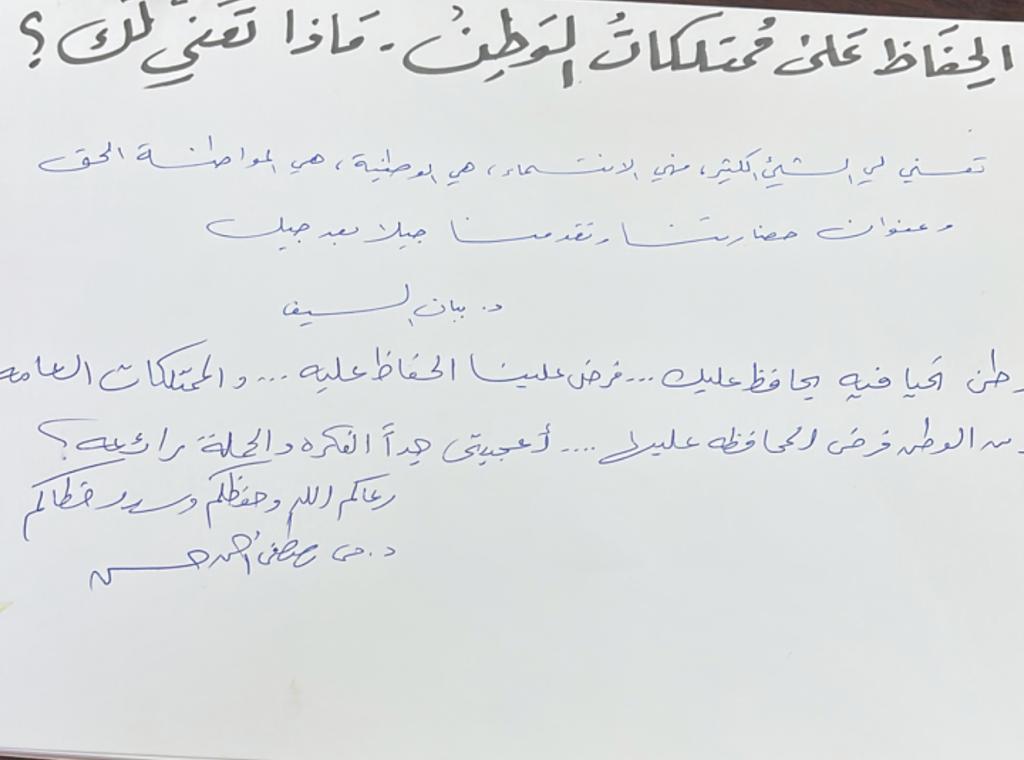 الحِفَاظ عَلىٰ مُمتلكاتُ الوَطِنُ - مَاذا تَعَني لَك ؟
تعني لي الشيئ الكثير، فهي الانتماء، هي الوطنية، هي المواطنة الحق
وعنوان حضارتنا وتقدمنا جيلا بعد جيل
د. بيان السيف
وطن تحيا فيه يحافظ عليك ... فرض علينا الحفاظ عليه ... والممتلكات العامه
من الوطن فرض المحافظه عليها .... أعجبتني جداً الفكره والحملة رائعه ؟
رعاكم الله وحفظكم وسدد خطاكم
د. مصطفى أحمد حسن